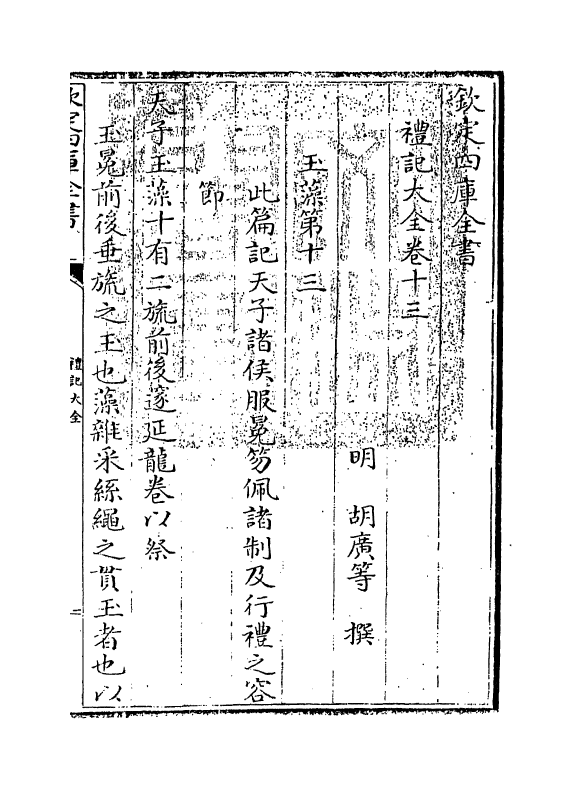 欽定四庫全書
禮記大全卷十三
明 胡廣等 撰
玉藻第十三
此篇記天子諸侯服冕笏佩諸制及行禮之容
節
天子玉藻十有二旒前後邃延龍卷以祭
玉冕前後垂旒之玉也藻雜采絲繩之貫玉者也以
欽定四庫全書
禮記大全